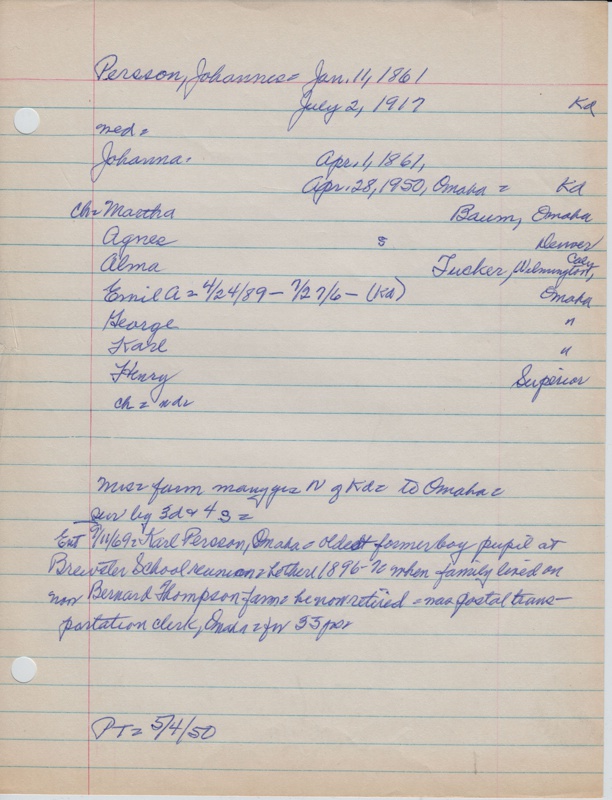 Persson, Johannes = Jan. 11, 1861
July 2, 1917 Kd
med =
Johanna. Apr. 1, 1861,
Apr. 28, 1950, Omaha = Kd
ch = Martha Baum, Omaha
Agnes Denver
Alma Tucker, Wilmington,
Emil A = 4/24/89 - (Kd) Omaha
George "
Karl "
Henry Superior
ch = nd =
farm many yrs N of Kd = to Omaha =
sur by 3d + 4 s =
Ent 9/11/69 = Karl Persson, Omaha = oldest former boy pupil at
Brewster School reunion = when family lived on
now Bernard Thompson farm = he now retired = was postal trans-
portation clerk, Omaha = for 33 yrs
PT = 5/4/50